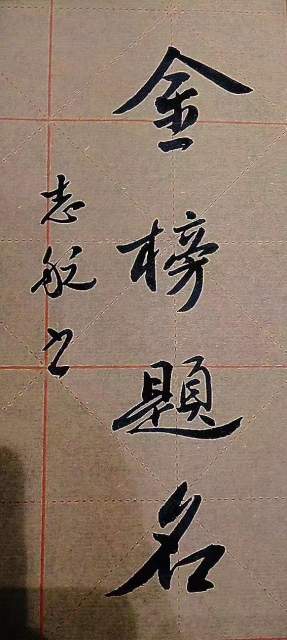 金榜題名
志航书